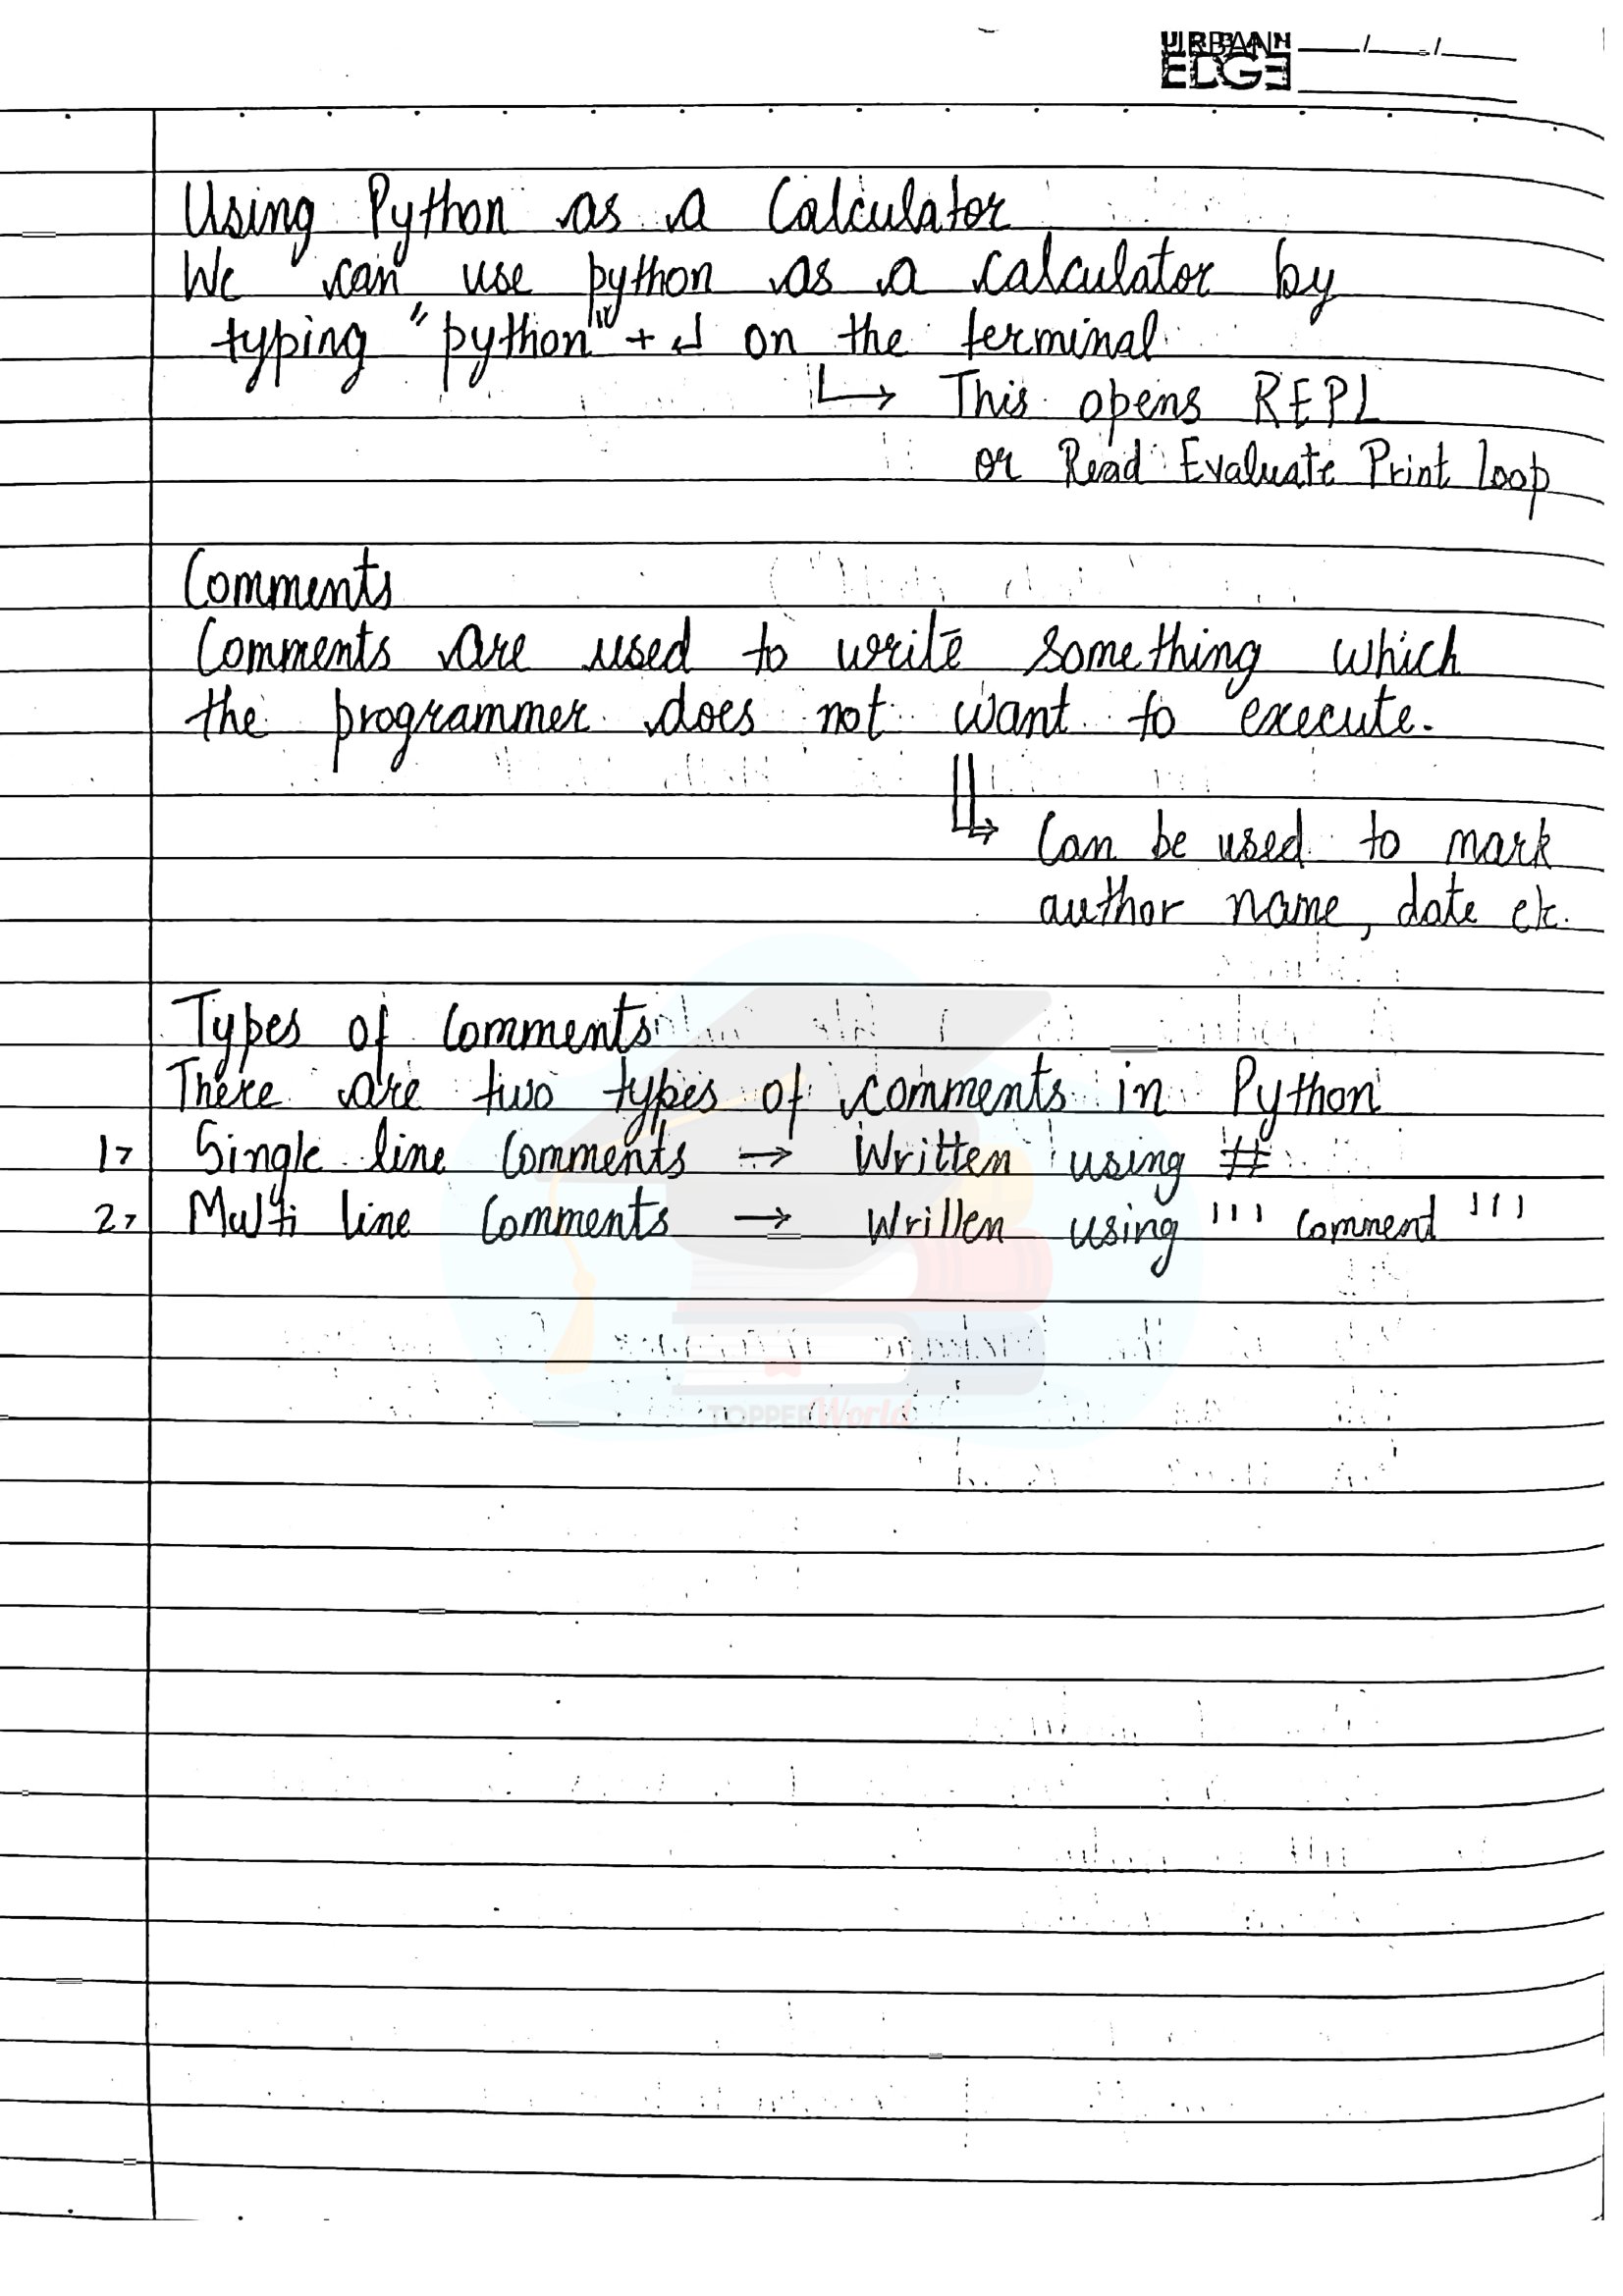 URBAN
EDGE
Using Python as a Calculator
We can use python as a calculator by
typing "python" + ↲ on the terminal
↳ This opens REPL
or Read Evaluate Print Loop
Comments
Comments are used to write something which
the programmer does not want to execute.
↳ Can be used to mark
author name, date etc.
Types of Comments
There are two types of comments in Python
1> Single line Comments → Written using #
2> Multi line Comments → Written using ''' Comment '''
TOPPERWorld